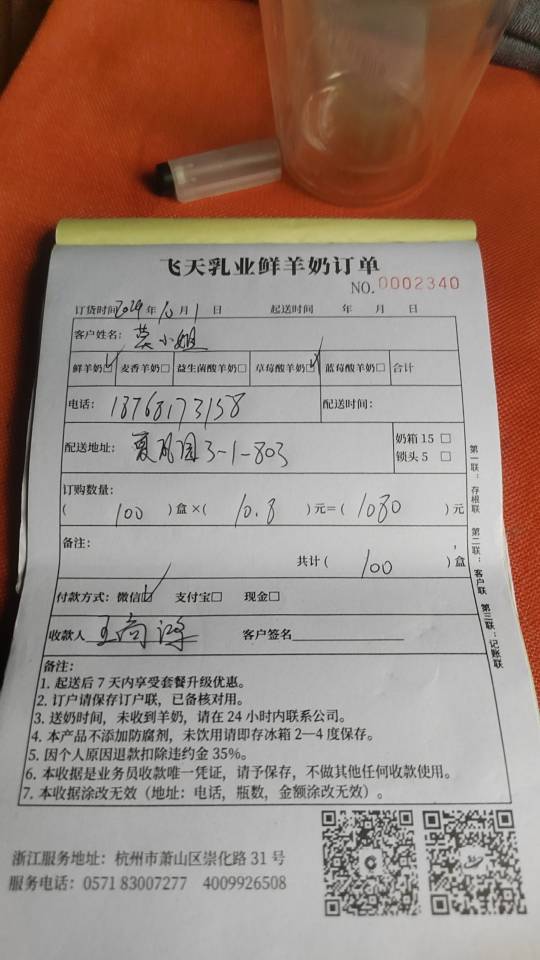 飞天乳业鲜羊奶订单
NO.0002340
订货时间2024年10月1日 起送时间 年 月 日
客户姓名: 莫小姐
鲜羊奶☑ 麦香羊奶□ 益生菌酸羊奶□ 草莓酸羊奶☑ 蓝莓酸羊奶□ 合计
电话: 18768173158 配送时间:
配送地址: 夏风园3-1-803 奶箱 15 □
锁头 5 □
订购数量:
( 100 )盒×( 10.8 )元=( 1080 )元
备注:
共计( 100 )盒
付款方式: 微信☑ 支付宝□ 现金□
收款人 王尚 客户签名
第一联:存根联 第二联:客户联 第三联:记账联
备注:
1. 起送后 7 天内享受套餐升级优惠。
2. 订户请保存订户联,已备核对用。
3. 送奶时间,未收到羊奶,请在 24 小时内联系公司。
4. 本产品不添加防腐剂,未饮用请即存冰箱 2—4 度保存。
5. 因个人原因退款扣除违约金 35%。
6. 本收据是业务员收款唯一凭证,请予保存,不做其他任何收款使用。
7. 本收据涂改无效(地址:电话,瓶数,金额涂改无效)。
浙江服务地址:杭州市萧山区崇化路 31 号
服务电话:0571 83007277 4009926508